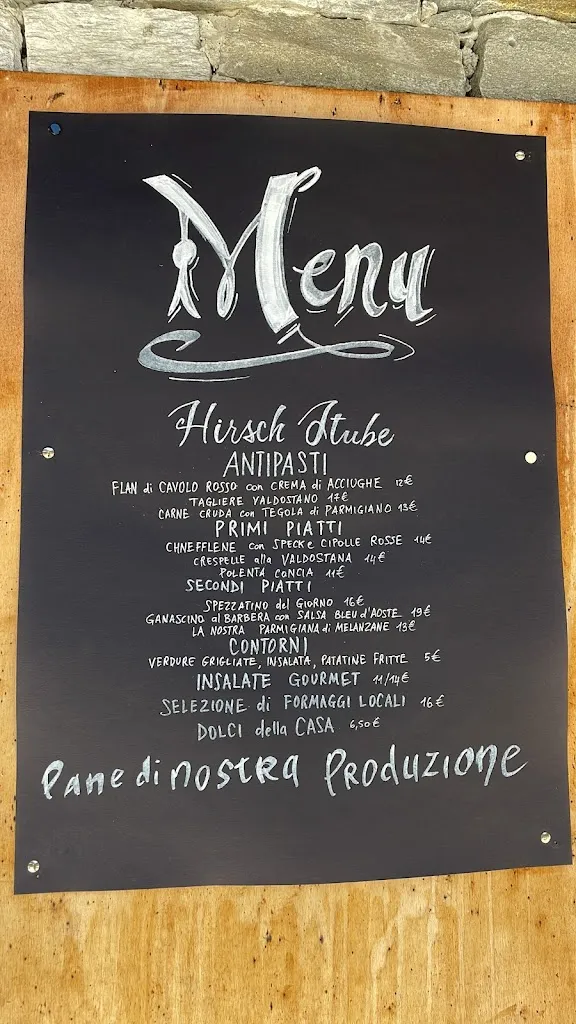 Menu
Hirsch Stube
ANTIPASTI
FLAN di CAVOLO ROSSO con CREMA di ACCIUGHE 12€
TAGLIERE VALDOSTANO 17€
CARNE CRUDA con TEGOLA di PARMIGIANO 13€
PRIMI PIATTI
CHNEFFLENE con SPECK e CIPOLLE ROSSE 14€
CRESPELLE alla VALDOSTANA 14€
POLENTA CONCIA 11€
SECONDI PIATTI
SPEZZATINO del GIORNO 16€
GANASCINO al BARBERA con SALSA BLEU d'AOSTE 19€
LA NOSTRA PARMIGIANA di MELANZANE 13€
CONTORNI
VERDURE GRIGLIATE, INSALATA, PATATINE FRITTE 5€
INSALATE GOURMET 11/14€
SELEZIONE di FORMAGGI LOCALI 16€
DOLCI della CASA 6,50€
Pane di nostra Produzione